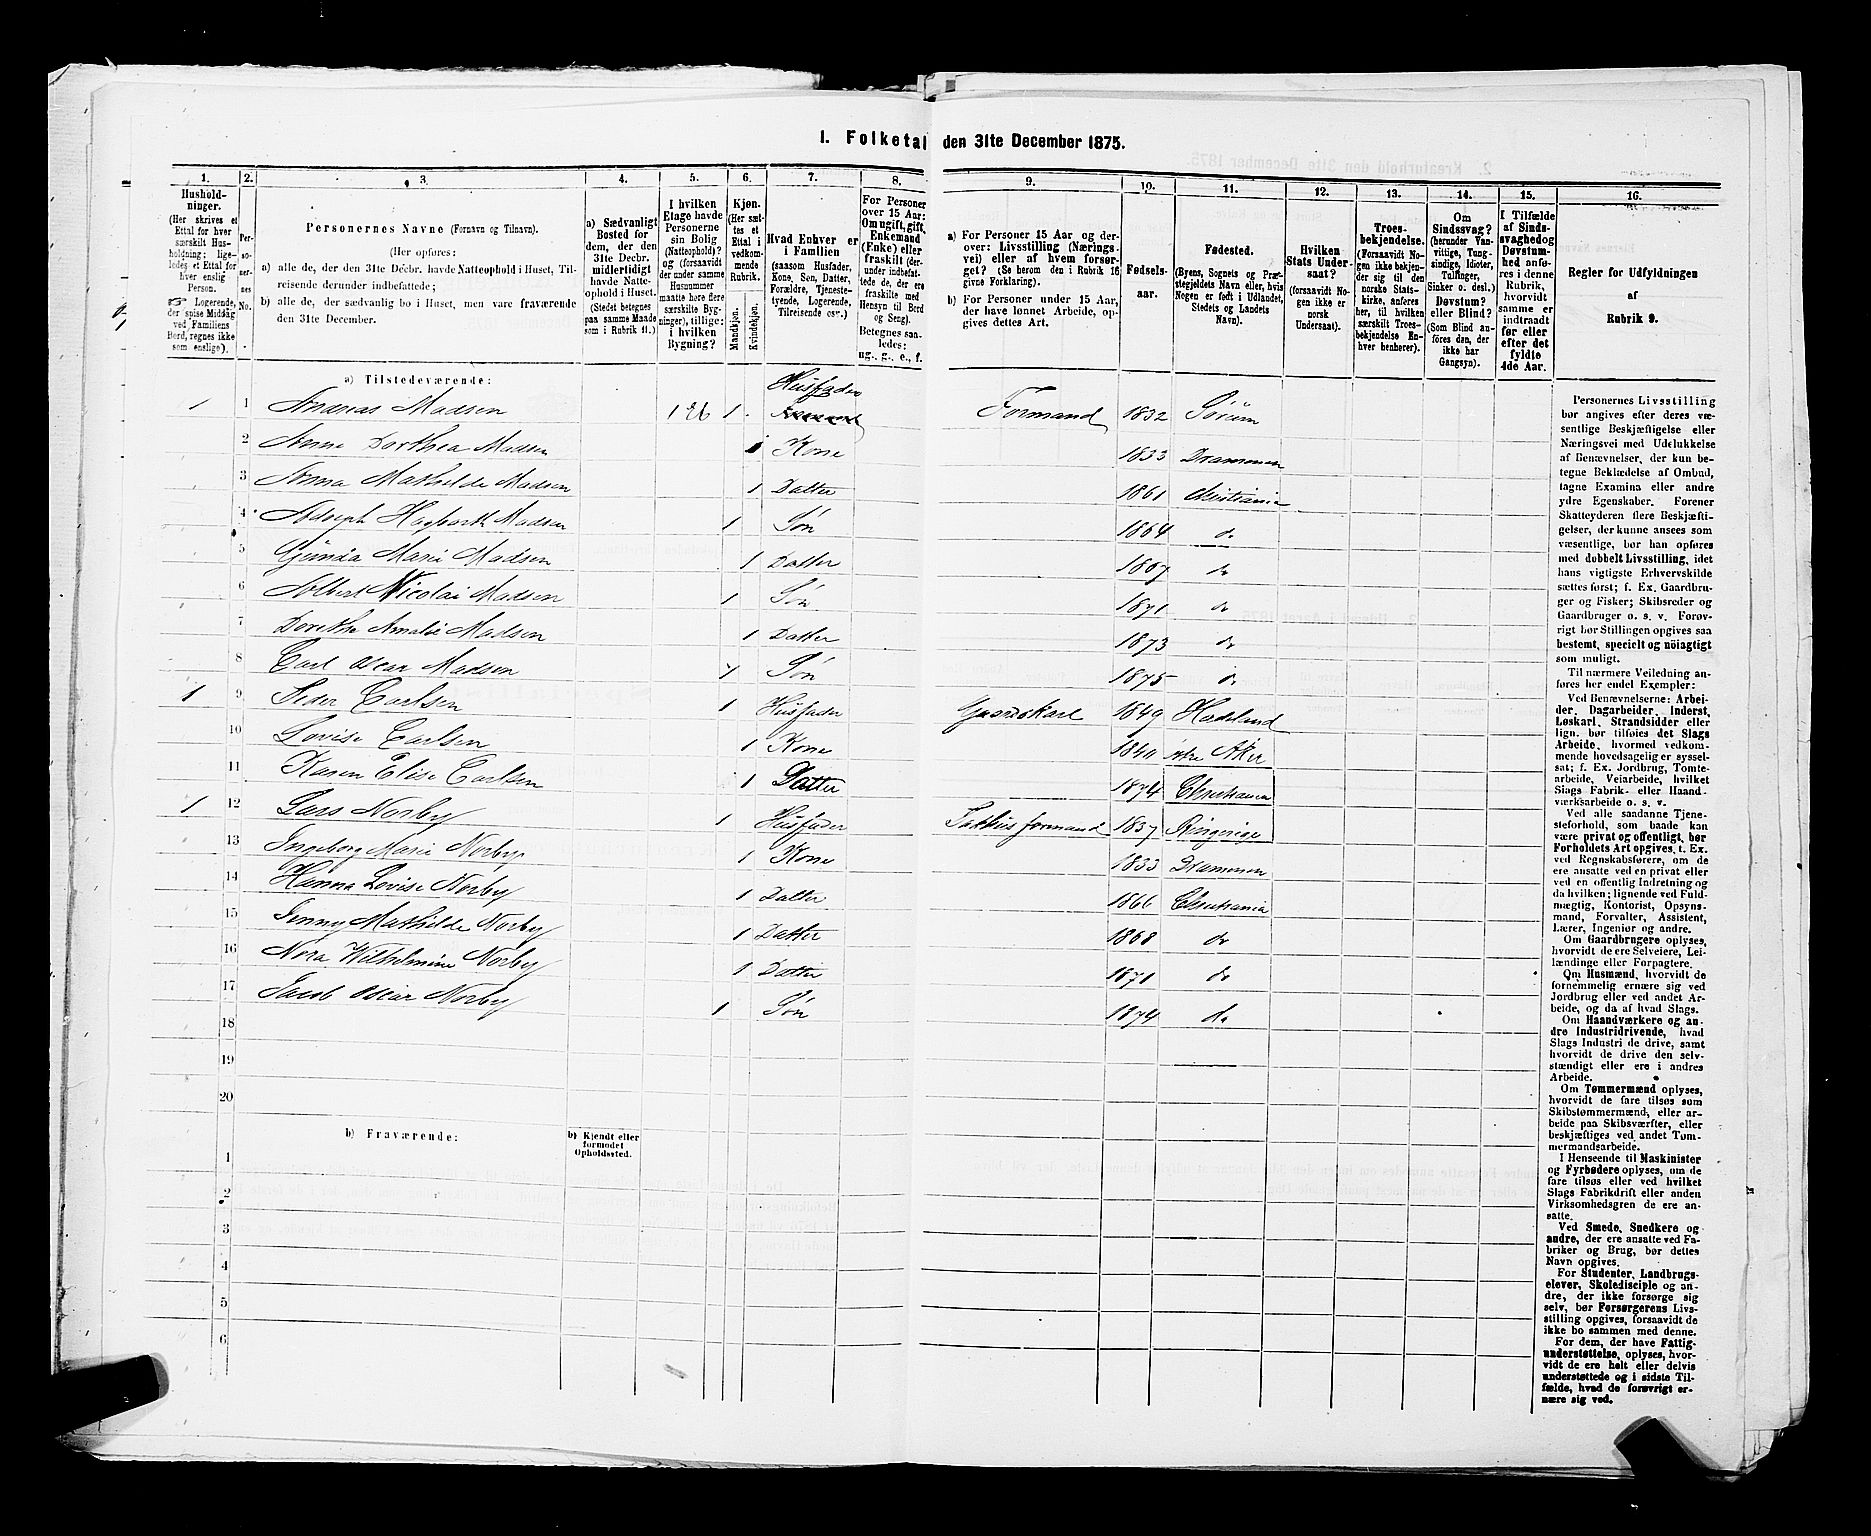 1. Folketal den 31te December 1875.
1. 2. 3. 4. 5. 6. 7. 8. 9. 10. 11. 12. 13. 14. 15. 16.
Hushold-
ninger.
(Her skrives et
Ettal for hver
særskilt Hus-
holdning; lige-
ledes et Ettal for
hver enslig
Person.
☞ Logerende,
der spise Middag
ved Familiens
Bord, regnes ikke
som enslige).
Per-
so-
ner-
nes
No.
Personernes Navne (Fornavn og Tilnavn).
(Her opføres:
a) alle de, der den 31te Decbr. havde Natteophold i Huset, Til-
reisende derunder indbefattede;
b) alle de, der sædvanlig bo i Huset, men vare fraværende
den 31te December.
a) Sædvanligt
Bosted for
dem, der den
31te Decbr.
midlertidigt
havde Natte-
ophold i Huset.
(Stedet betegnes
paa samme Maade
som i Rubrik 11.)
I hvilken
Etage havde
Personerne
sin Bolig
(Natteophold)?
og (forsaavidt
der under samme
Husnummer
maatte høre flere
særskilte Byg-
ninger), tillige:
i hvilken
Bygning?
Kjøn.
(Her sæt-
tes et
Ettal i
vedkom-
mende
Rubrik.
Mandkjøn.
Kvindekjøn.
Hvad Enhver er
i Familien
(saasom Husfader,
Kone, Søn, Datter,
Forældre, Tjeneste-
tyende, Logerende,
Tilreisende osv.)
For Personer
over 15 Aar:
Om ugift, gift,
Enkemand
(Enke) eller
fraskilt (der-
under indbefat-
tede de, der ere
fraskilte med
Hensyn til Bord
og Seng).
Betegnes saa-
ledes:
ug., g., e., f.
a) For Personer 15 Aar og der-
over: Livsstilling (Nærings-
vei) eller af hvem forsør-
get? (Se herom den i Rubrik 16
givne Forklaring).
b) For Personer under 15 Aar,
der have lønnet Arbeide, op-
gives dettes Art.
Fødsels-
aar.
Fødested.
(Byens, Sognets og Præ-
stegjeldets Navn eller, hvis
Nogen er født i Udlandet,
Stedets og Landets
Navn).
Hvilken
Stats Under-
saat?
(forsaavidt No-
gen ikke er
norsk
Undersaat).
Troes-
bekjendelse.
(Forsaavidt No-
gen ikke bekjen-
der sig til den
norske Stats-
kirke, anføres
her, til hvilken
særskilt Troes-
bekjendelse En-
hver henhører).
Om
Sindssvag?
(herunder Van-
vittige, Tung-
sindige, Idioter,
Tullinger,
Sinker o. desl.)
Døvstum?
eller Blind?
(Som Blind an-
føres den, der
ikke har
Gangsyn).
I Tilfælde
af Sinds-
svaghed og
Døvstum-
hed anfø-
res i denne
Rubrik,
hvorvidt
samme er
indtraadt
før eller
efter det
fyldte
4de Aar.
Regler for Udfyldningen
af
Rubrik 9.
a) Tilstedeværende:
Husfader
1 1 Andreas Madsen 1 1 Formand 1832 Sørum
2 Anne Dorthea Madsen 1 Kone 1833 Drammen
3 Anna Mathilde Madsen 1 Datter 1861 Christiania
4 Adolph Hagbarth Madsen 1 Søn 1864 do
5 Gunda Marie Madsen 1 Datter 1867 do
6 Albert Nicolai Madsen 1 Søn 1871 do
7 Dorethe Amalie Madsen 1 Datter 1873 do
8 Carl Oscar Madsen 1 Søn 1875 do
1 9 Peder Carlsen 1 Husfader Gaardskarl 1849 Hadeland
10 Lovise Carlsen 1 Kone 1840 Aker
11 Karen Elise Carlsen 1 Datter 1874 Christiania
1 12 Lars Norby 1 Husfader formand 1837 Ringerige
13 Ingeborg Marie Norby 1 Kone 1833 Drammen
14 Hanna Lovise Norby 1 Datter 1866 Christiania
15 Jenny Mathilde Norby 1 Datter 1868 do
16 Nora Wilhelmine Norby 1 Datter 1871 do
17 Jacob Oscar Norby 1 Søn 1874 do
18
19
20
b) Fraværende:
b) Kjendt eller
formodet
Opholdssted.
1
2
3
4
5
6
Personernes Livsstilling
bør angives efter deres væ-
sentlige Beskjæftigelse eller
Næringsvei med Udelukkelse
af Benævnelser, der kun be-
tegne Beklædelse af Ombud,
tagne Examina eller andre
ydre Egenskaber. Forener
Skatteyderen flere Beskjæfti-
gelser, der kunne ansees som
væsentlige, bør han opføres
med dobbelt Livsstilling, idet
hans vigtigste Erhvervskilde
sættes først; f. Ex. Gaardbru-
ger og Fisker; Skibsreder og
Gaardbruger o. s. v. Forøv-
rigt bør Stillingen opgives saa
bestemt, specielt og nöiagtigt
som muligt.
Til nærmere Veiledning an-
føres her endel Exempler:
Ved Benævnelserne: Arbei-
der, Dagarbeider, Inderst,
Løskarl, Strandsidder eller
lign. bør tilføies det Slags
Arbeide, hvormed vedkom-
mende hovedsagelig er syssel-
sat; f. Ex. Jordbrug, Tomte-
arbeide, Veiarbeide, hvilket
Slags Fabrik- eller Haand-
værksarbeide o. s. v.
Ved alle saadanne Tjene-
steforhold, som baade kan
være privat og offentligt, bør
Forholdets Art opgives, t. Ex.
ved Regnskabsførere, om de
ere ansatte ved en privat eller
ved en offentlig Indretning og
da hvilken; lignende ved Fuld-
mægtig, Kontorist, Opsyns-
mand, Forvalter, Assistent,
Lærer, Ingeniør og andre.
Om Gaardbrugere oplyses,
hvorvidt de ere Selveiere, Lei-
lændinge eller Forpagtere.
Om Husmænd, hvorvidt de
fornemmelig ernære sig ved
Jordbrug eller ved andet Ar-
beide, og da af hvad Slags.
Om Haandværkere og an-
dre Industridrivende, hvad
Slags Industri de drive, samt
hvorvidt de drive den selv-
stændigt eller ere i andres
Arbeide.
Om Tømmermænd oplyses,
hvorvidt de fare tilsøs som
Skibstømmermænd, eller ar-
beide paa Skibsværfter, eller
beskjæftiges ved andet Tøm-
mermandsarbeide.
I Henseende til Maskinister
og Fyrbødere oplyses, om de
fare tilsøs eller ved hvilket
Slags Fabrikdrift eller anden
Virksomhedsgren de ere an-
satte.
Ved Smede, Snedkere og
andre, der ere ansatte ved Fa-
briker og Brug, bør dettes
Navn opgives.
For Studenter, Landbrugs-
elever, Skoledisciple og an-
dre, der ikke forsørge sig
selv, bør Forsørgerens Livs-
stilling opgives, forsaavidt de
ikke bo sammen med denne.
For dem, der have Fattig-
understøttelse, oplyses, hvor-
vidt de ere helt eller delvis
understøttede og i sidste Til-
fælde, hvad de forøvrigt er-
nære sig ved.